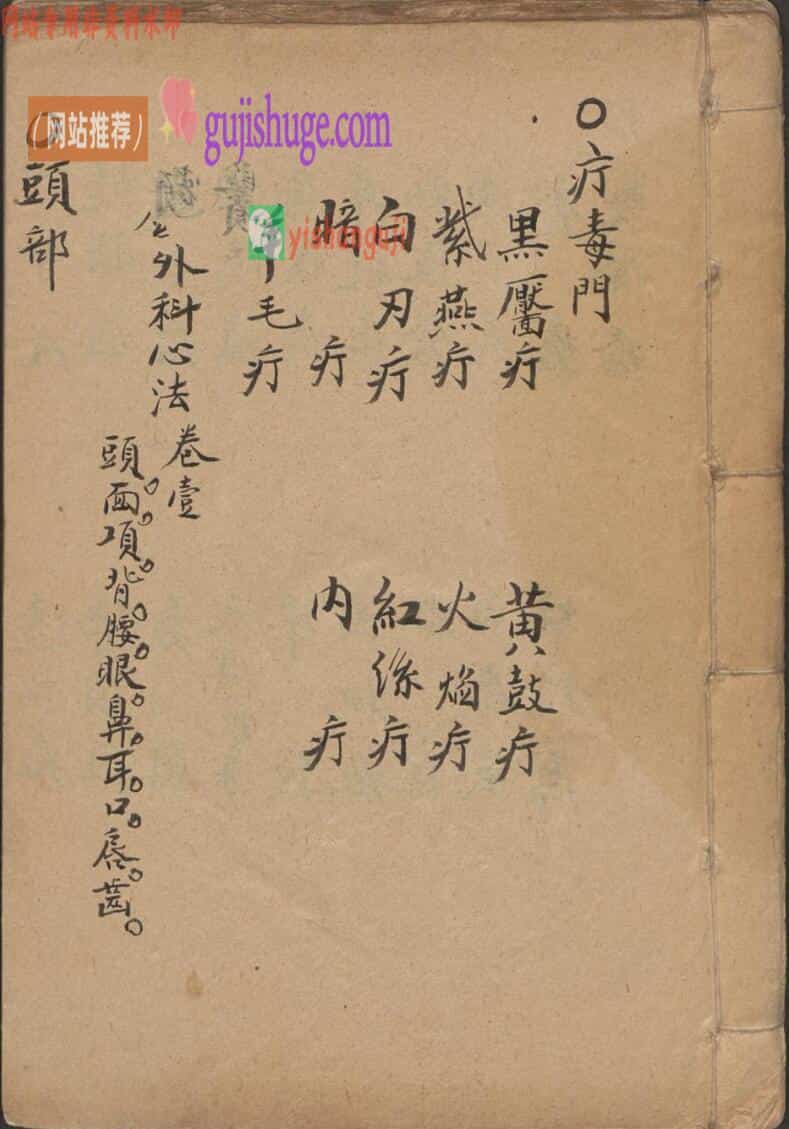 ○疔毒門
黑靨疔
黄鼓疔
紫燕疔
火焰疔
白刃疔
紅絲疔
暗疔
内疔
羊毛疔
外科心法卷壹
頭。面。項。背。腰。眼。鼻。耳。口。唇。齒。
○頭部
(网站推荐)
gujishuge.com
yishenguji